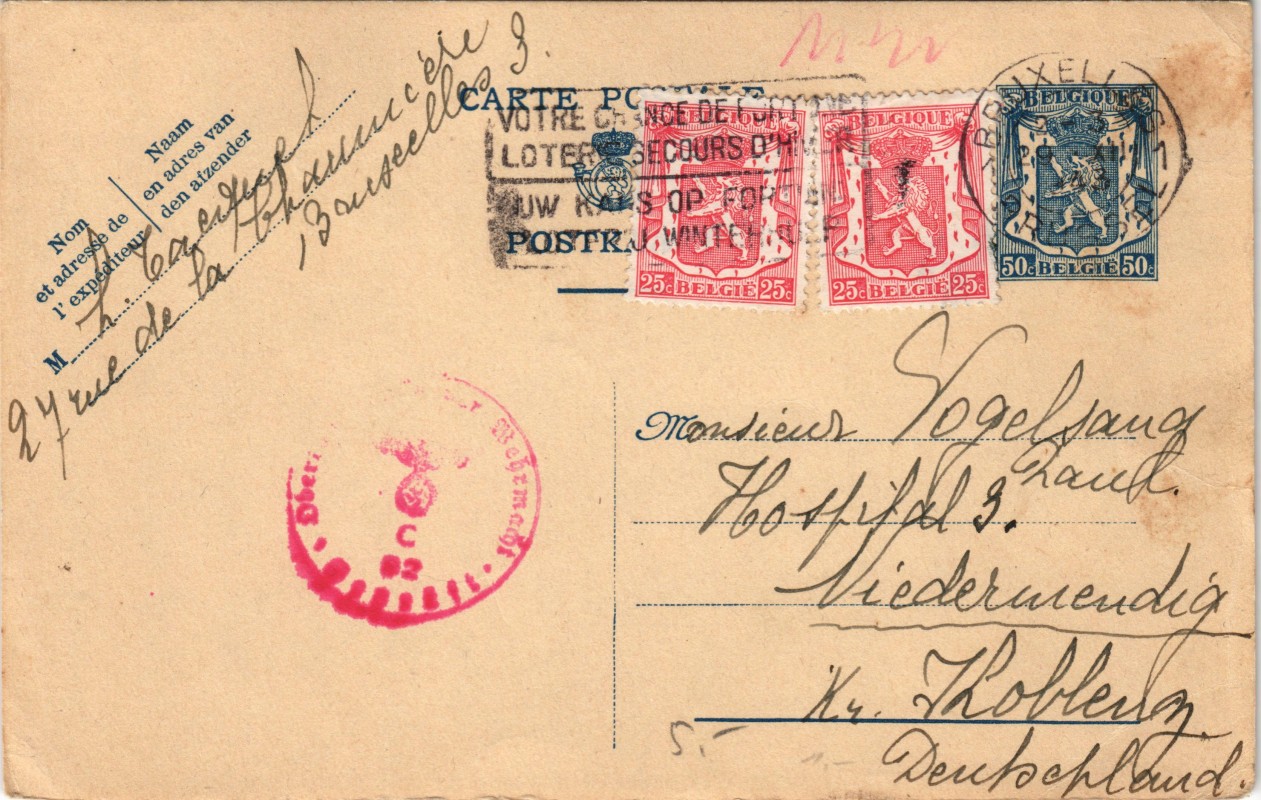 CARTE POSTALE
VOTRE CHANCE DE
LOTERIE SECOURS D'HIVER
UW KANS OP FORTUIN
WINTER
BRUXELLES 1
BELGIQUE
50c 50c
BELGIQUE
25c BELGIË 25c
BELGIQUE
25c BELGIË 25c
Naam
en adres van
den afzender
Nom
et adresse de
l'expéditeur
M
27 rue de la Chaumière
Bruxelles 3.
Wehrmacht
C
82
Monsieur Vogelsang
Hospital 3.
Niedermendig
Kr. Koblenz
Deutschland.
5.-
1.-